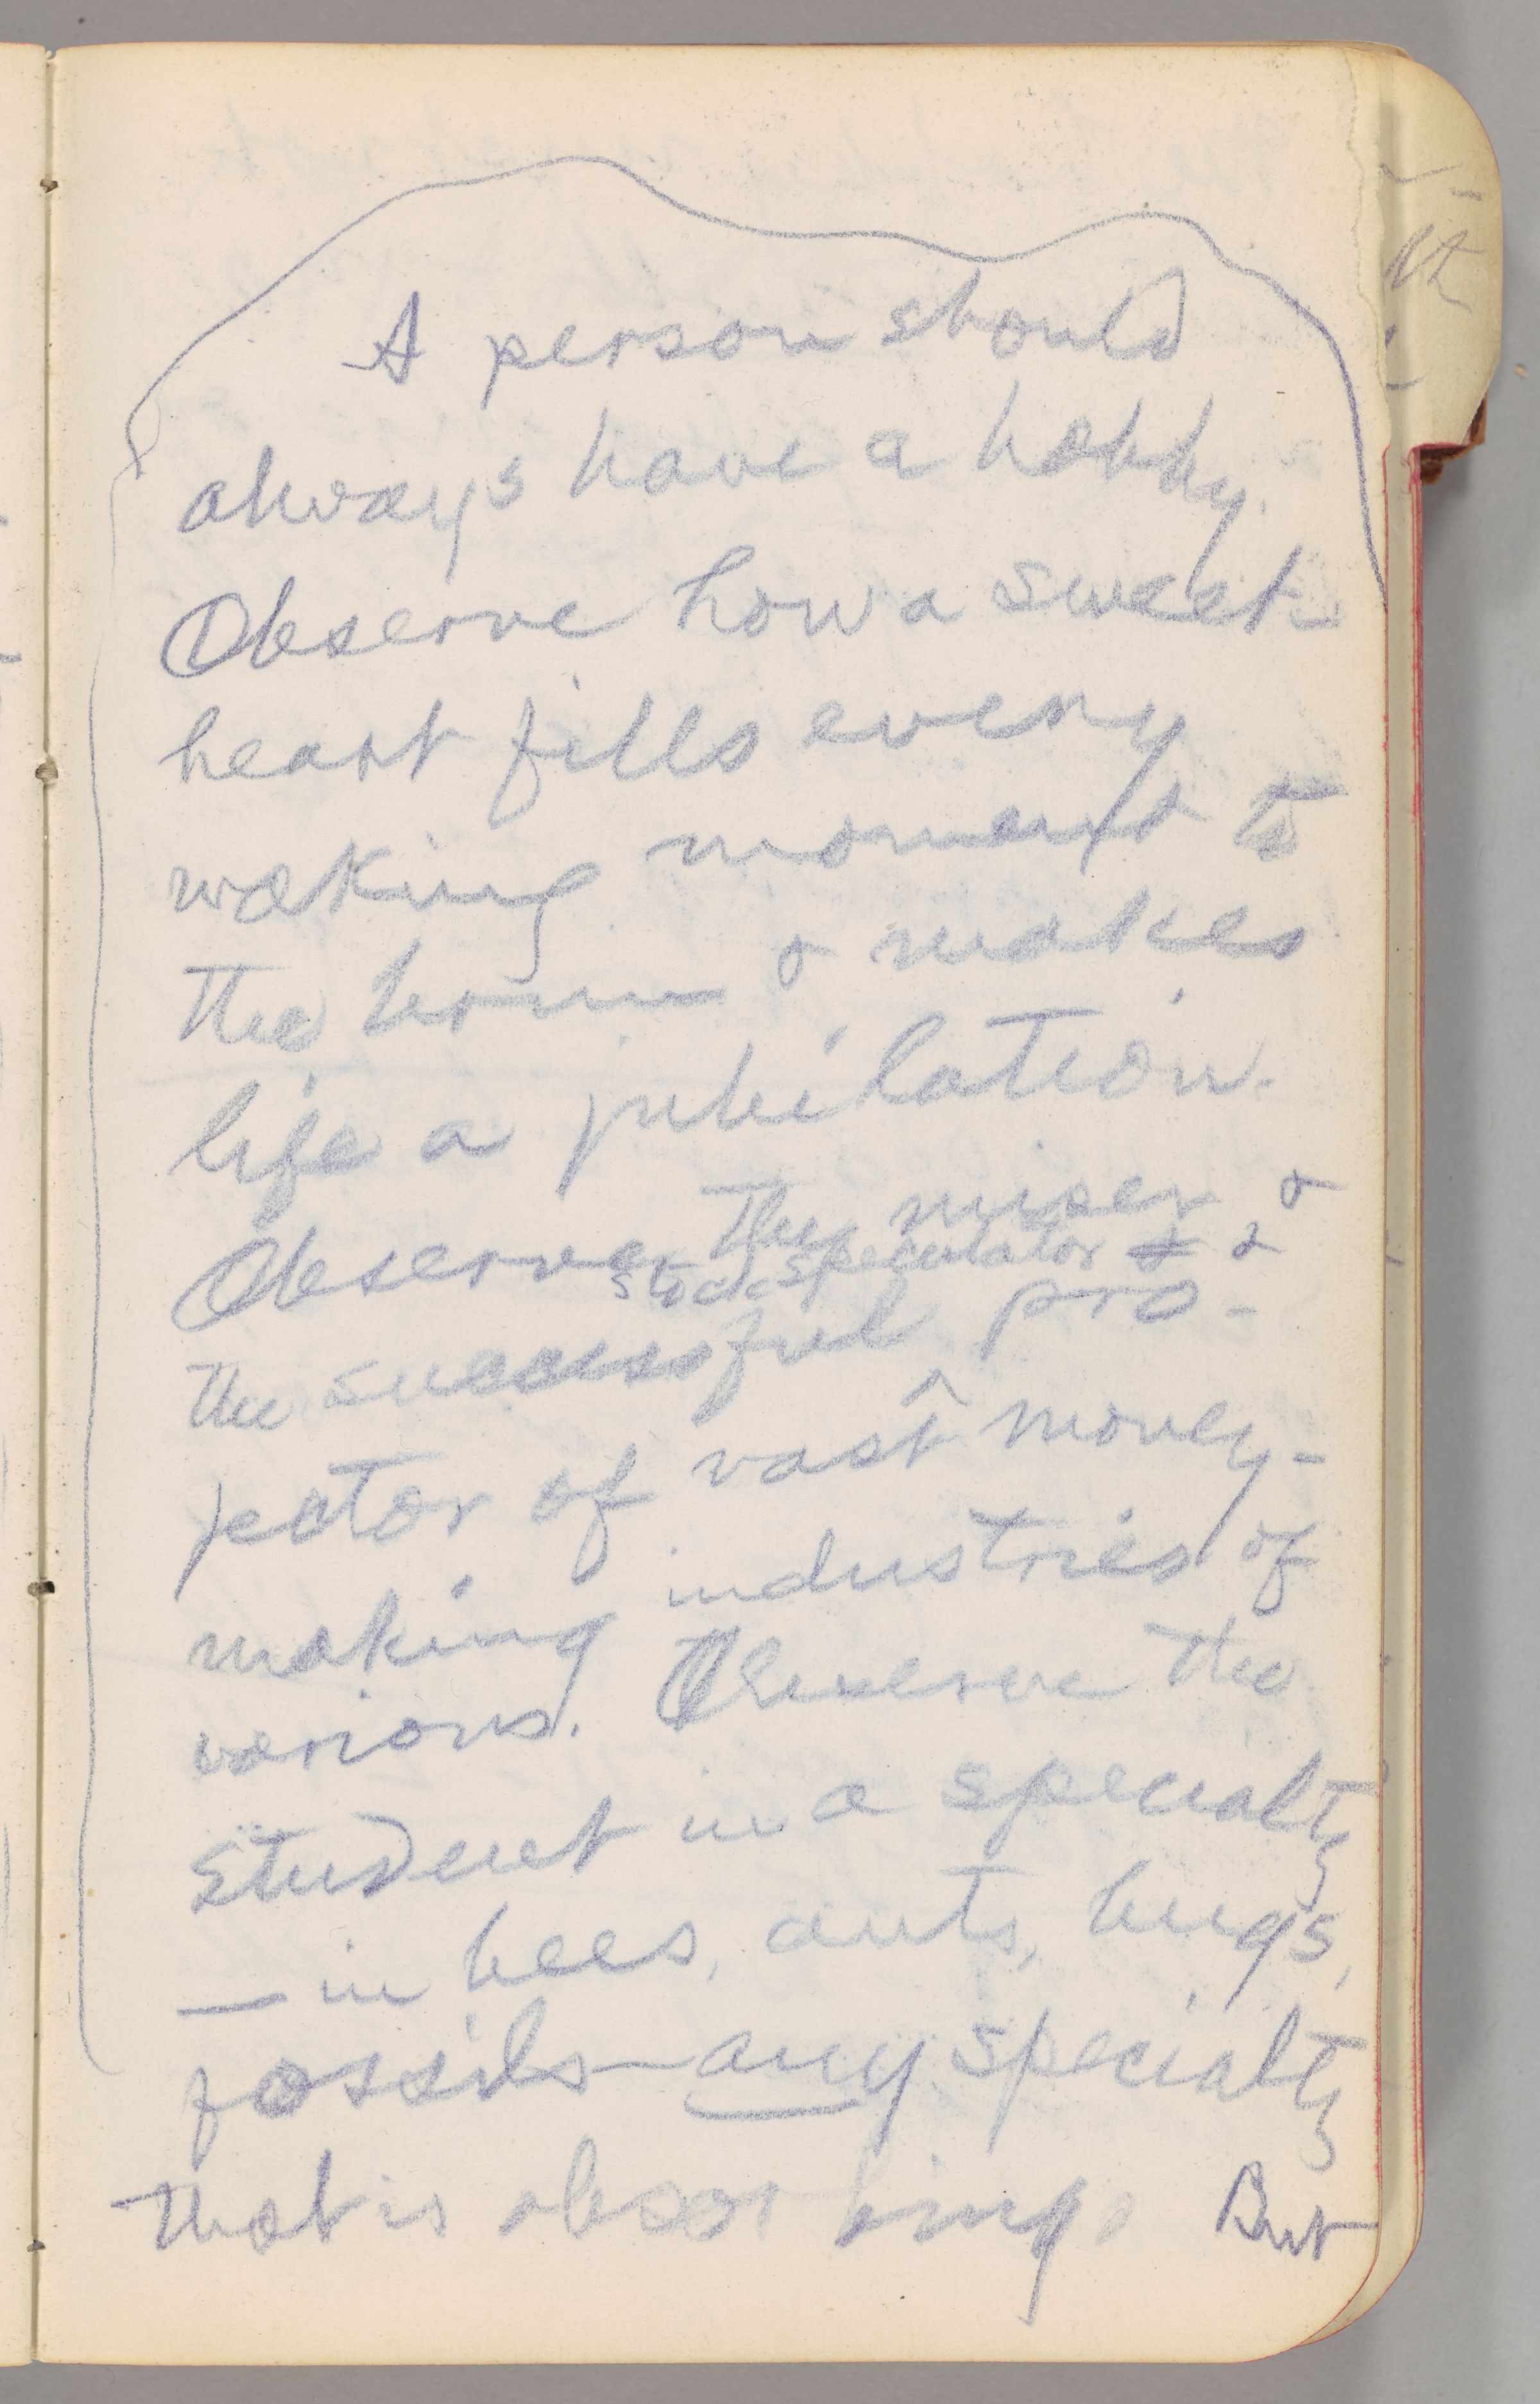 A person should
always have a hobby.
Observe how a sweet-
heart fills every
waking moment to
the brim & makes
life a jubilation.
Observe the miser, &
stock speculator & &
the successful pro-
jector of vast ^ money-
making industries of
various. Observe the
student in a specialty
— in bees, ants, bugs,
fossils—any specialty
that is absorbing. But